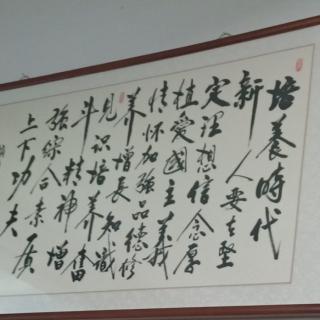 培養時代
新人要在堅
定理想信念厚
植愛國主義
情懷加強品德修
養增長知識
見識培養奮
斗精神增
強綜合素質
上下功夫